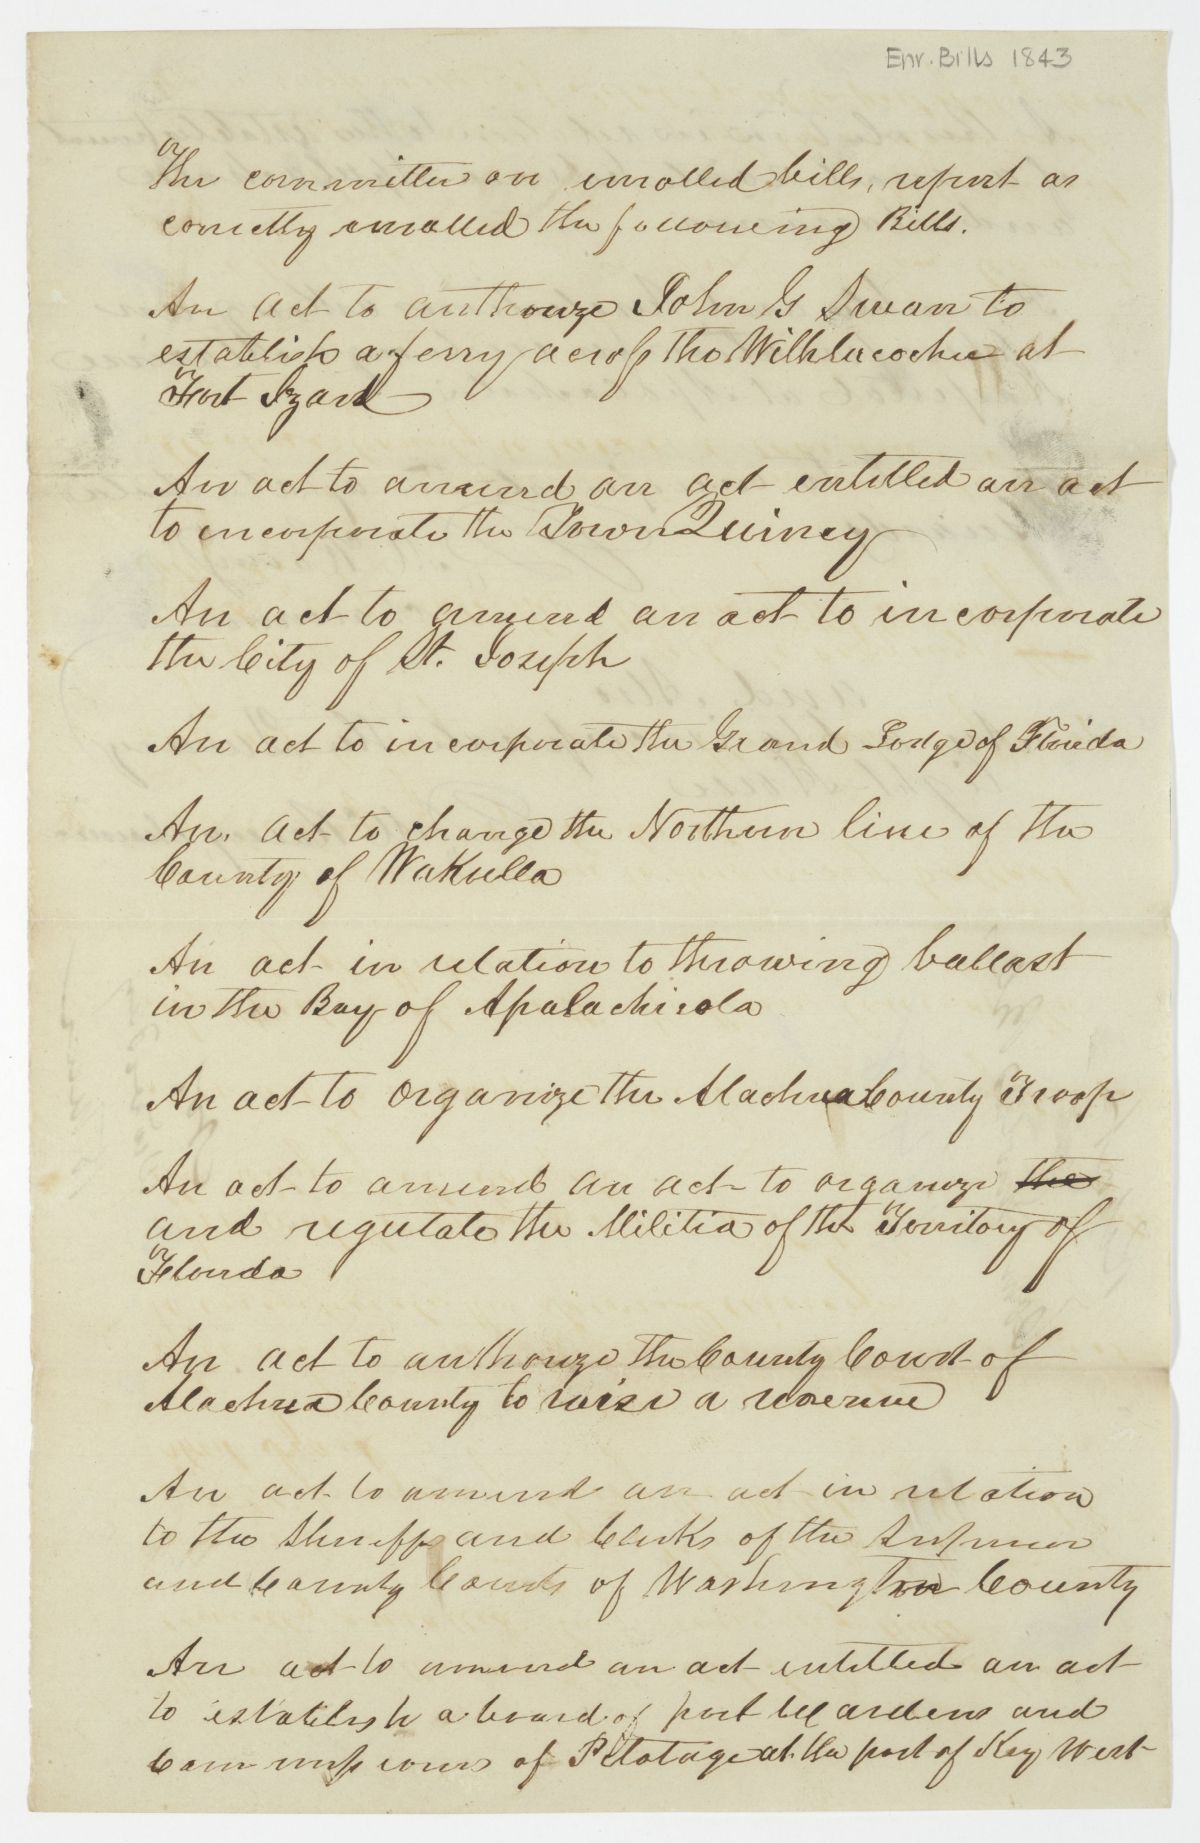 Enr. Bills 1843
The committee on enrolled bills, report as
correctly enrolled the following Bills.
An act to authorize John G Swan to
establish a ferry across the Withlacochee at
Fort Izard
An act to amend an act entitled an act
to incorporate the Town Quincy
An act to amend an act to incorporate
the City of St. Joseph
An act to incorporate the Grand Lodge of Florida
An act to change the Northern line of the
County of Wakulla
An act in relation to throwing ballast
in the Bay of Apalachicola
An act to organize the Alachua County Troop
An act to amend an act to organize the
and regulate the Militia of the Territory of
Florida
An act to authorize the County Court of
Alachua County to raise a revenue
An act to amend an act in relation
to the Sheriffs and Clerks of the Superior
and County Courts of Washington County
An act to amend an act entitled an act
to establish a board of port Wardens and
Commissioners of Pilotage at the port of Key West